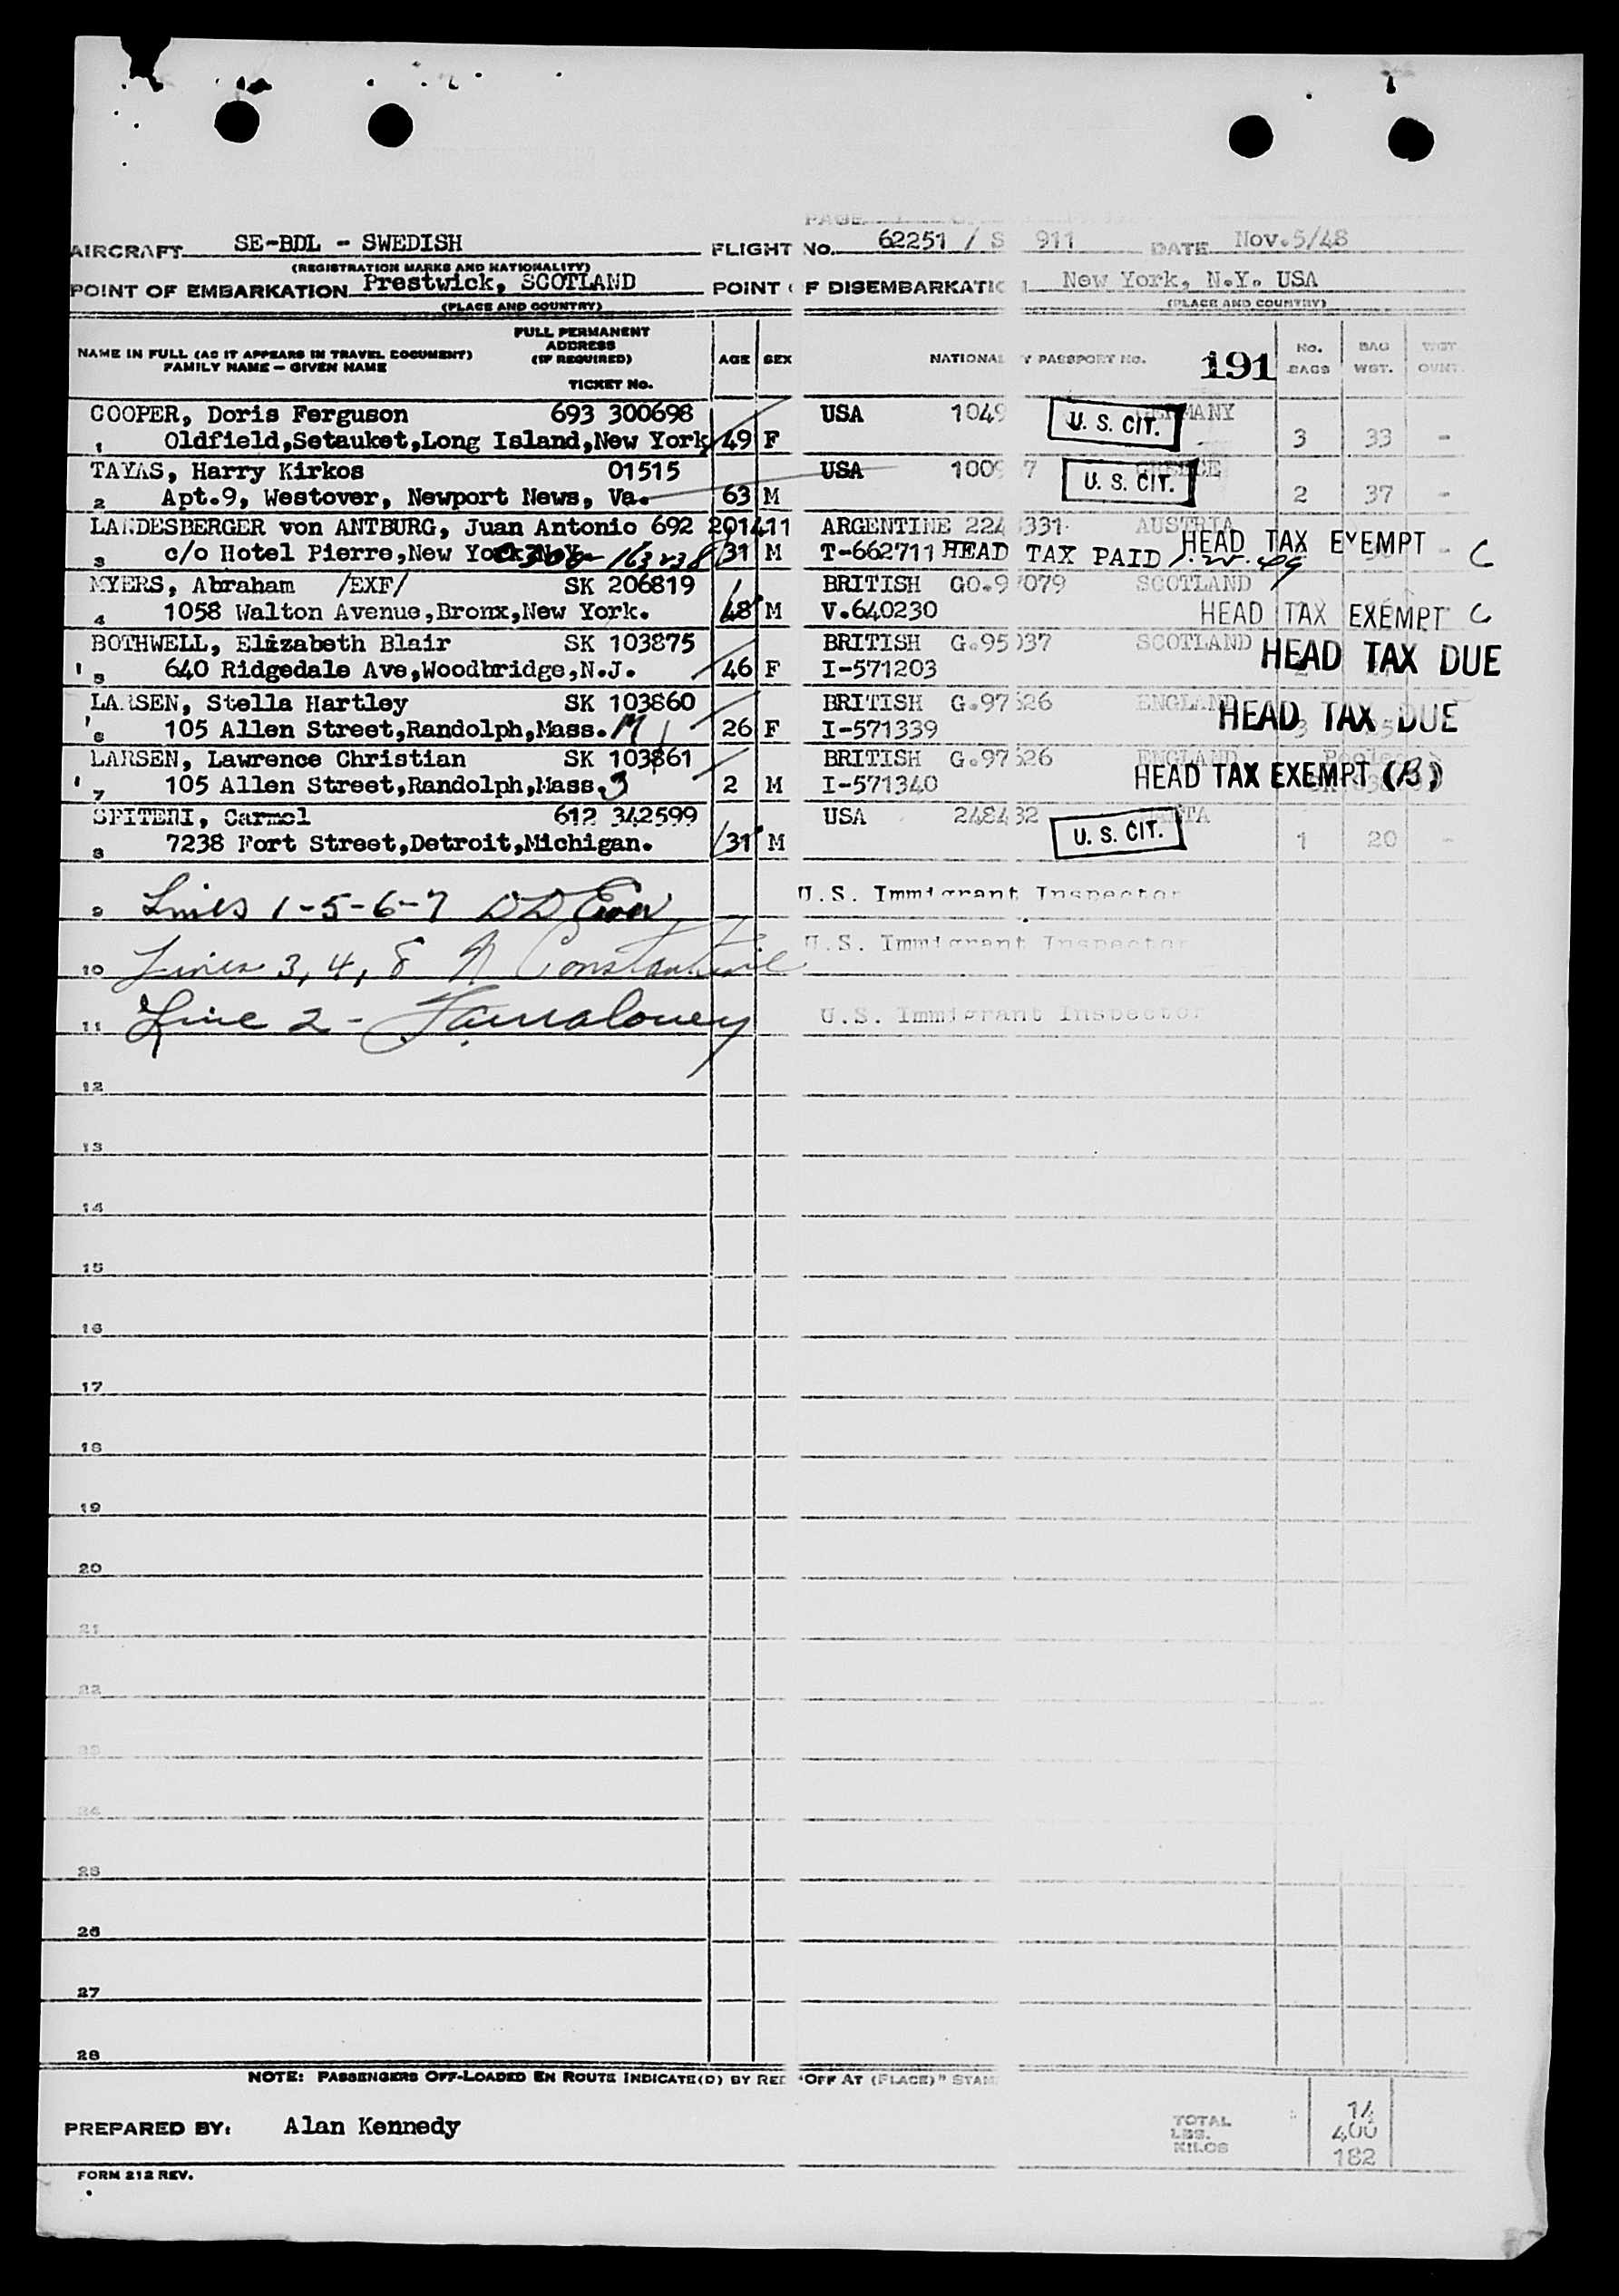 AIRCRAFT SE-BDL - SWEDISH FLIGHT No. 62251 / S 911 DATE Nov.5/48
(REGISTRATION MARKS AND NATIONALITY)
POINT OF EMBARKATION Prestwick, SCOTLAND POINT OF DISEMBARKATION New York, N.Y. USA
(PLACE AND COUNTRY) (PLACE AND COUNTRY)
NAME IN FULL (AS IT APPEARS IN TRAVEL DOCUMENT) FULL PERMANENT ADDRESS (IF REQUIRED) AGE SEX NATIONAL Y PASSPORT No. 191 No. BAGS BAG WGT. WGT
FAMILY NAME — GIVEN NAME TICKET No.
COOPER, Doris Ferguson 693 300698 USA 1049 U. S. CIT.
1 Oldfield,Setauket,Long Island,New York 49 F 3 33 -
TAYAS, Harry Kirkos 01515 USA 100 7 U. S. CIT. GREECE
2 Apt.9, Westover, Newport News, Va. 63 M 2 37 -
LANDESBERGER von ANTBURG, Juan Antonio 692 201411 ARGENTINE 224 331 AUSTRIA HEAD TAX EXEMPT - C
3 c/o Hotel Pierre,New York 31 M T-662711 HEAD TAX PAID
MYERS, Abraham /EXF/ SK 206819 BRITISH GO.9 079 SCOTLAND
4 1058 Walton Avenue,Bronx,New York. 48 M V.640230 HEAD TAX EXEMPT C
BOTHWELL, Elizabeth Blair SK 103875 BRITISH G.95 037 SCOTLAND HEAD TAX DUE
5 640 Ridgedale Ave,Woodbridge,N.J. 46 F I-571203
LARSEN, Stella Hartley SK 103860 BRITISH G.97 526 ENGLAND HEAD TAX DUE
6 105 Allen Street,Randolph,Mass. 26 F I-571339
LARSEN, Lawrence Christian SK 103861 BRITISH G.97 526 ENGLAND
7 105 Allen Street,Randolph,Mass. 3 2 M I-571340 HEAD TAX EXEMPT (B)
SPITERI, Carmel 612 342599 USA 2484 32 U. S. CIT.
8 7238 Fort Street,Detroit,Michigan. 31 M 1 20 -
9 Lines 1-5-6-7 U.S. Immigrant Inspector
10 Lines 3, 4, 8 N Constantine U.S. Immigrant Inspector
11 Line 2 - U.S. Immigrant Inspector
12
13
14
15
16
17
18
19
20
21
22
23
24
25
26
27
28
NOTE: PASSENGERS OFF-LOADED EN ROUTE INDICATE(D) BY RED "OFF AT (PLACE)" STAM
PREPARED BY: Alan Kennedy TOTAL 14
LBS. 400
KILOS 182
FORM 212 REV.